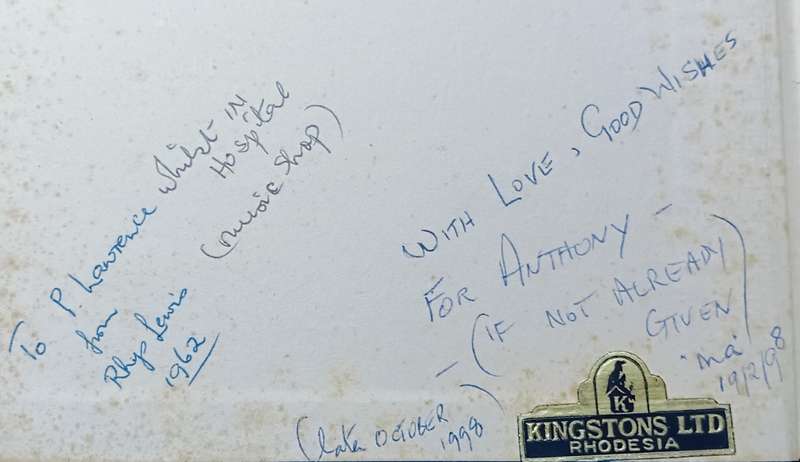 To P. Lawrence whilst IN
Hospital
from
Rhys Lewis (music shop)
1962
WITH LOVE, GOOD WISHES
FOR ANTHONY –
– (IF NOT ALREADY
GIVEN)
'ma'
19/2/98
(later OCTOBER
1998)
K
KINGSTONS LTD
RHODESIA